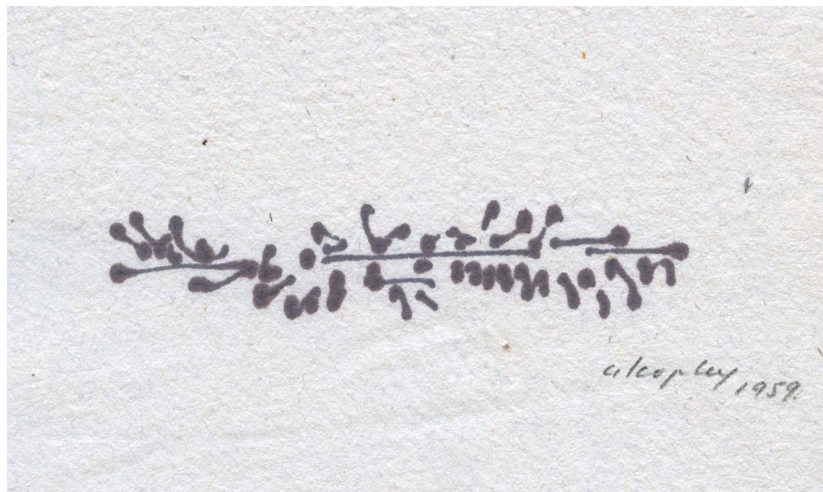 alcopley 1959.